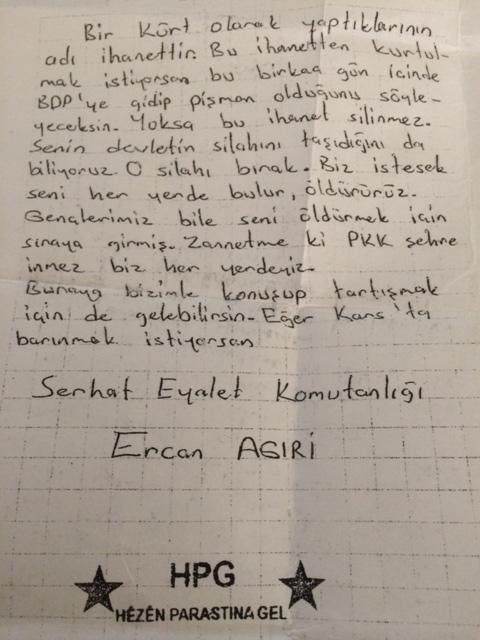 Bir Kürt olarak yaptıklarının
adı ihanettir. Bu ihanetten kurtul-
mak istiyorsan bu birkaç gün içinde
BDP'ye gidip pişman olduğunu söyle-
yeceksin. Yoksa bu ihanet silinmez.
Senin devletin silahını taşıdığını da
biliyoruz. O silahı bırak. Biz istesek
seni her yerde bulur, öldürürüz.
Gençlerimiz bile seni öldürmek için
sıraya girmiş. Zannetme ki PKK şehre
inmez biz her yerdeyiz.
Buraya bizimle konuşup tartışmak
için de gelebilirsin. Eğer Kars'ta
barınmak istiyorsan
Serhat Eyalet Komutanlığı
Ercan AGIRİ
HPG
HÊZÊN PARASTINA GEL